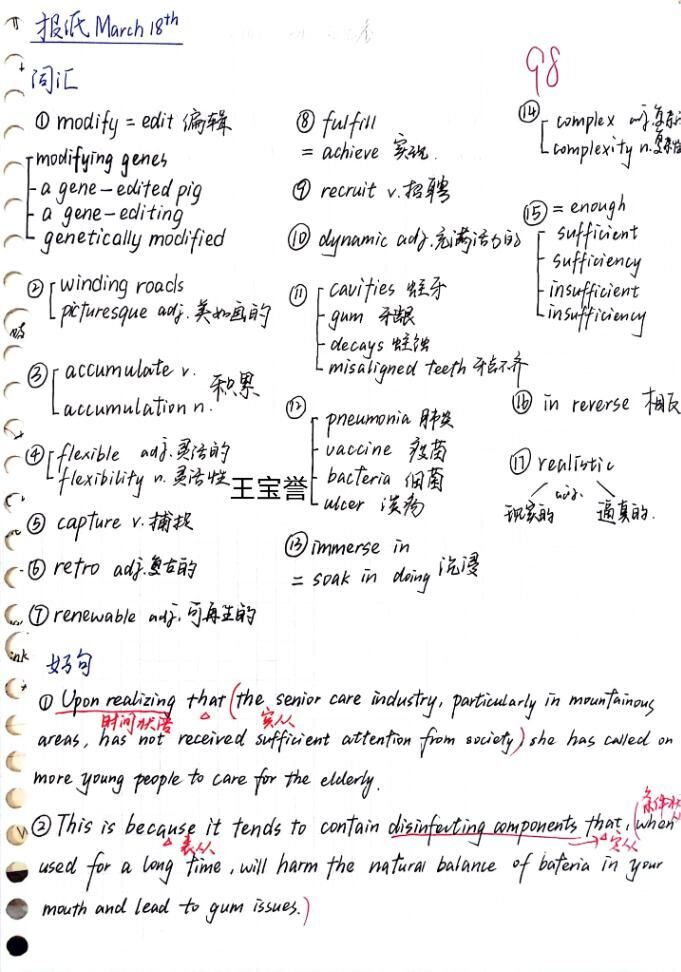 报纸 March 18th
98
词汇
① modify = edit 编辑
modifying genes
a gene-edited pig
a gene-editing
genetically modified
② winding roads
picturesque adj. 美如画的
③ accumulate v.
accumulation n. 积累
④ flexible adj. 灵活的
flexibility n. 灵活性
⑤ capture v. 捕捉
⑥ retro adj. 复古的
⑦ renewable adj. 可再生的
⑧ fulfill
= achieve 实现.
⑨ recruit v. 招聘
⑩ dynamic adj. 充满活力的
⑪ cavities 蛀牙
gum 牙龈
decays 蛀蚀
misaligned teeth 牙齿不齐
⑫ pneumonia 肺炎
vaccine 疫苗
bacteria 细菌
ulcer 溃疡
王宝誉
⑬ immerse in
= soak in doing 沉浸
⑭ complex adj.
complexity n. 复杂性
⑮ = enough
sufficient
sufficiency
insufficient
insufficiency
⑯ in reverse 相反
⑰ realistic
adj.
现实的 逼真的.
好句
① Upon realizing that (the senior care industry, particularly in mountainous
时间状语 宾从
areas, has not received sufficient attention from society) she has called on
more young people to care for the elderly.
条件状
② This is because it tends to contain disinfecting components that, (when
表从
used for a long time, will harm the natural balance of bateria in your
mouth and lead to gum issues.)